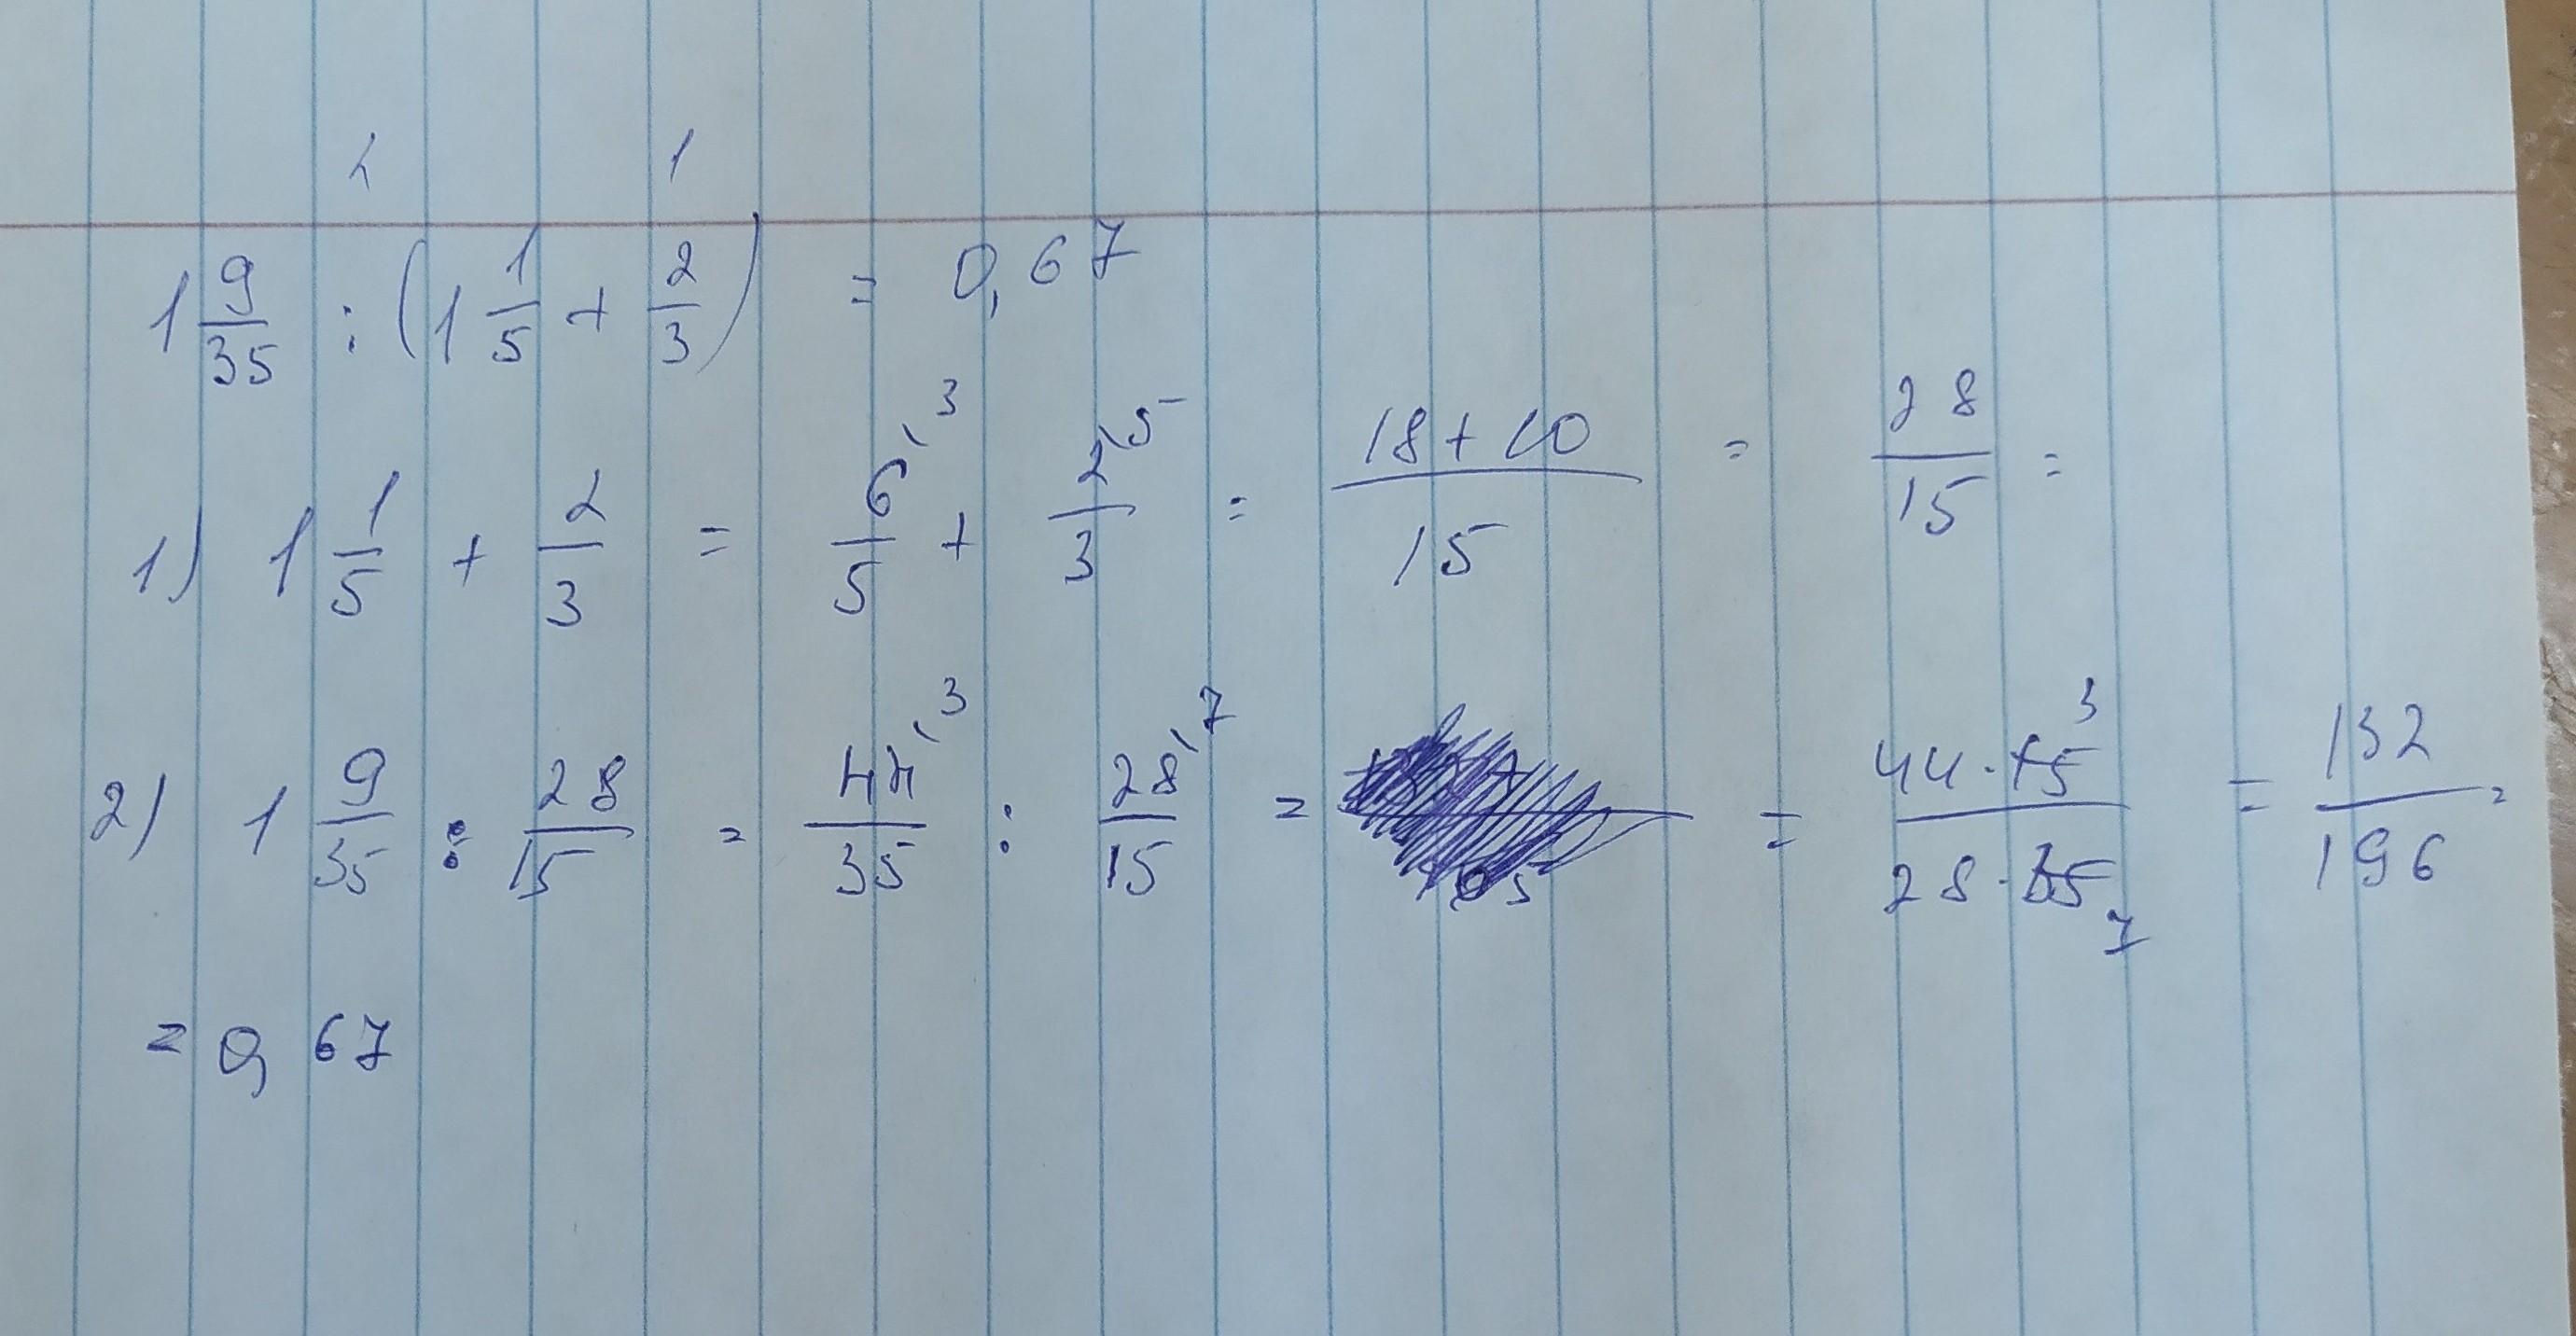 2 1
1 9/35 : (1 1/5 + 2/3) = 0,67
1) 1 1/5 + 2/3 = 6/5 ⁽³ + 2/3 ⁽⁵ = (18+10)/15 = 28/15 =
2) 1 9/35 : 28/15 = 44/35 ⁽³ : 28/15 ⁽⁷ = = (44·15 ³)/(28·35 ₇) = 132/196 =
= 0,67